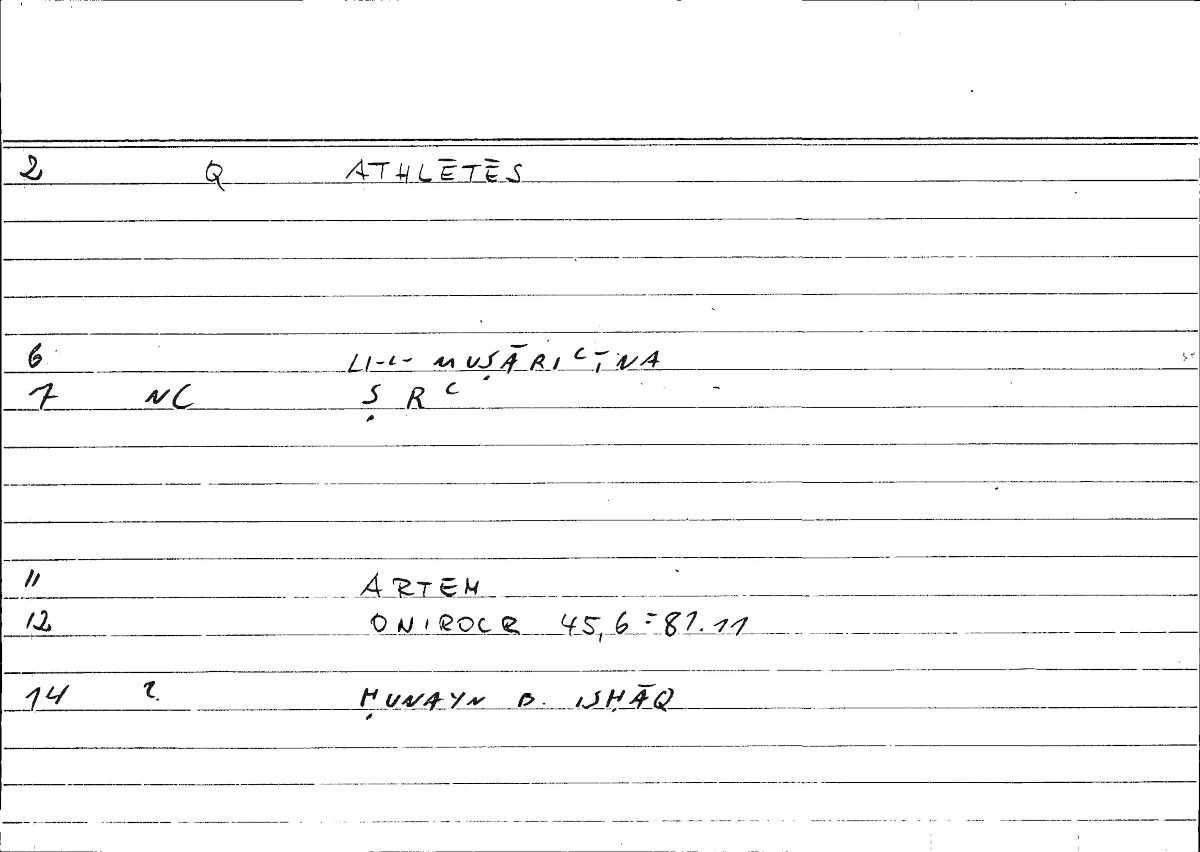 2 Q ATHLĒTĒS
6 LI-L- MUṢĀRIʿĪNA
7 NC ṢRʿ
11 ARTEM
12 ONIROCR 45,6=81.11
14 2 ḤUNAYN B. ISḤĀQ